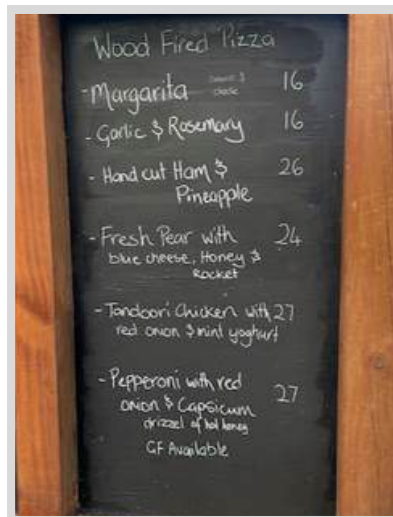 Wood Fired Pizza
- Margarita 16
- Garlic & Rosemary 16
- Hand cut Ham & 26
Pineapple
- Fresh Pear with 24
blue cheese, Honey &
Rocket
- Tandoori Chicken with 27
red onion & mint yoghurt
- Pepperoni with red
onion & Capsicum 27
drizzel of hot honey
GF Available